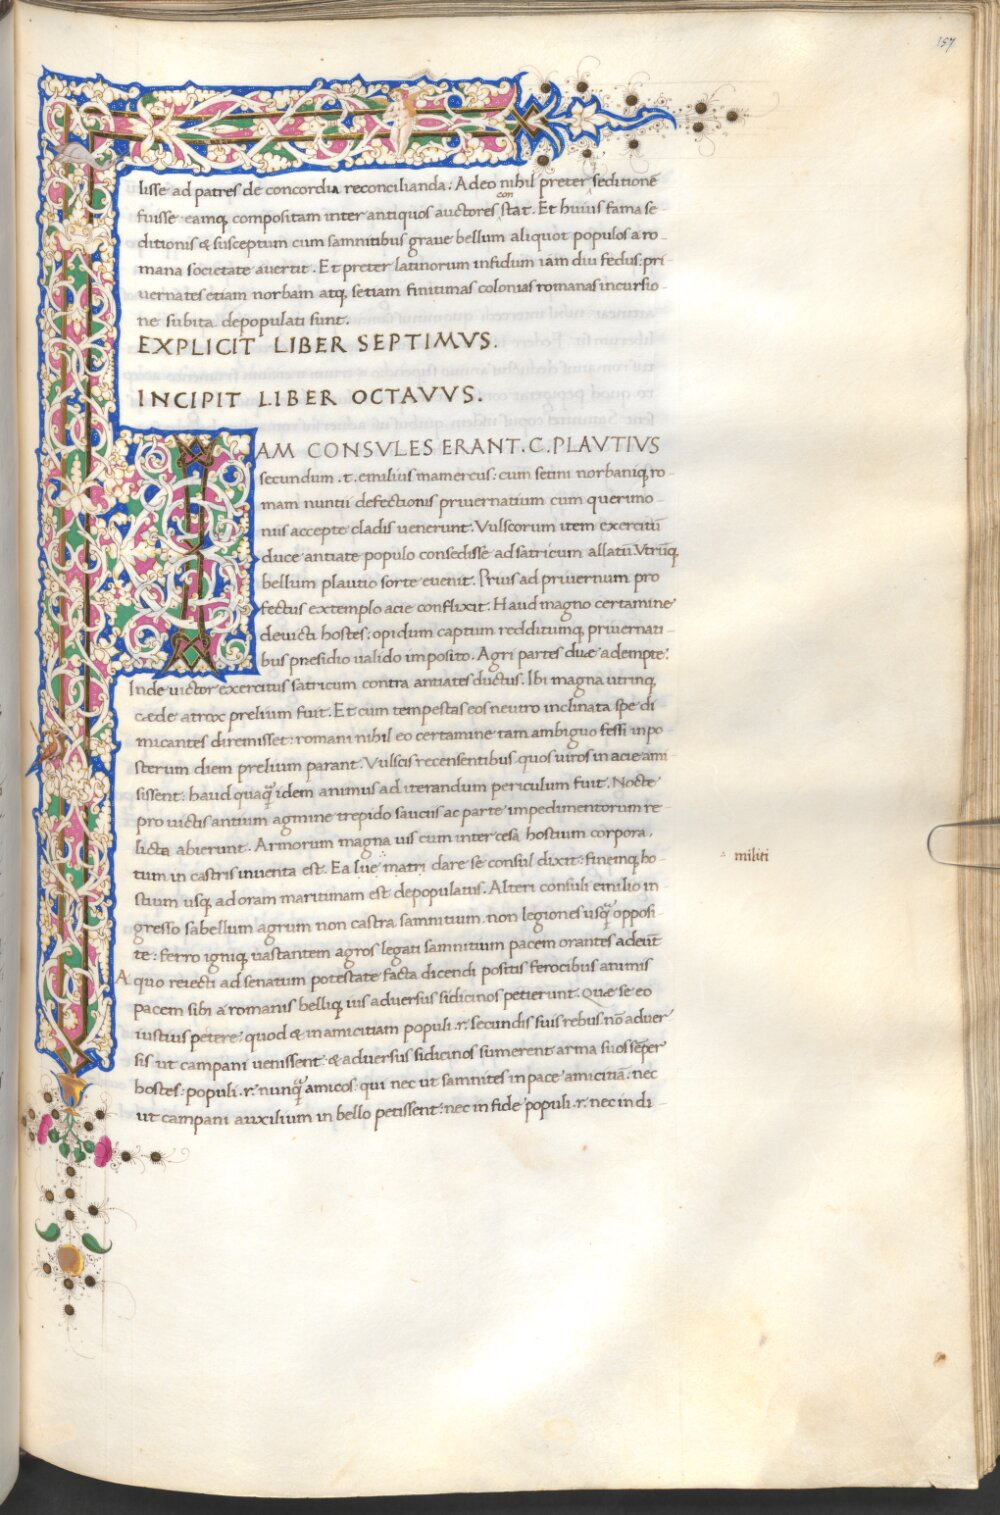 157
lisse ad patres de concordia reconcilianda: Adeo nihil preter seditionē
con
fuisse eamq, compositam inter antiquos auctores stat. Et huius fama se-
ditionis & susceptum cum samnitibus graue bellum aliquot populos a ro-
mana societate auertit. Et preter latinorum infidum iam diu fedus: pri-
uernates etiam norbam atq, setiam finitimas colonias romanas incursio-
ne subita depopulati sunt.
EXPLICIT LIBER SEPTIMVS.
INCIPIT LIBER OCTAVVS.
IAM CONSVLES ERANT. C. PLAVTIVS
secundum .t. emilius mamercus: cum setini norbaniq, ro-
mam nuntii defectionis priuernatium cum querimo-
niis accepte cladis uenerunt. Vulscorum item exercitū
duce antiate populo consedisse ad satricum allatū. Vtrūq
bellum plautio sorte euenit. Prius ad priuernum pro
fectus extemplo acie conflixit. Haud magno certamine
deuicti hostes: opidum captum redditumq, priuernati-
bus presidio ualido imposito. Agri partes duæ adempte.
Inde uictor exercitus satricum contra antiates ductus. Ibi magna utrinq,
cæde atrox prelium fuit. Et cum tempestas eos neutro inclinata spe di
micantes diremisset: romani nihil eo certamine tam ambiguo fessi in po-
sterum diem prelium parant. Vulscis recensentibus quos uiros in acie ami-
sissent: haud quaq̃ idem animus ad iterandum periculum fuit. Nocte
pro uictis antium agmine trepido sauciis ac parte impedimentorum re-
licta abierunt. Armorum magna uis cum inter cesa hostium corpora,
tum in castris inuenta est. Ea lue matri dare se consul dixit: finemq, ho-
militi
stium usq, ad oram maritimam est depopulatus. Alteri consuli emilio in-
gresso sabellum agrum non castra samnitium. non legiones usq̃ opposi-
te: ferro igniq, uastantem agros legati samnitium pacem orantes adeūt
A quo reiecti ad senatum potestate facta dicendi positis ferocibus animis
pacem sibi a romanis belliq, ius aduersus sidicinos petierunt. Quæ se eo
iustius petere: quod & in amicitiam populi .r. secundis suis rebus. nō aduer
sis ut campani uenissent: & aduersus sidicinos sumerent arma suos sēper
hostes: populi .r. nunq̃ amicos: qui nec ut samnites in pace amicitiā: nec
ut campani auxilium in bello petissent: nec in fide populi .r. nec in di-